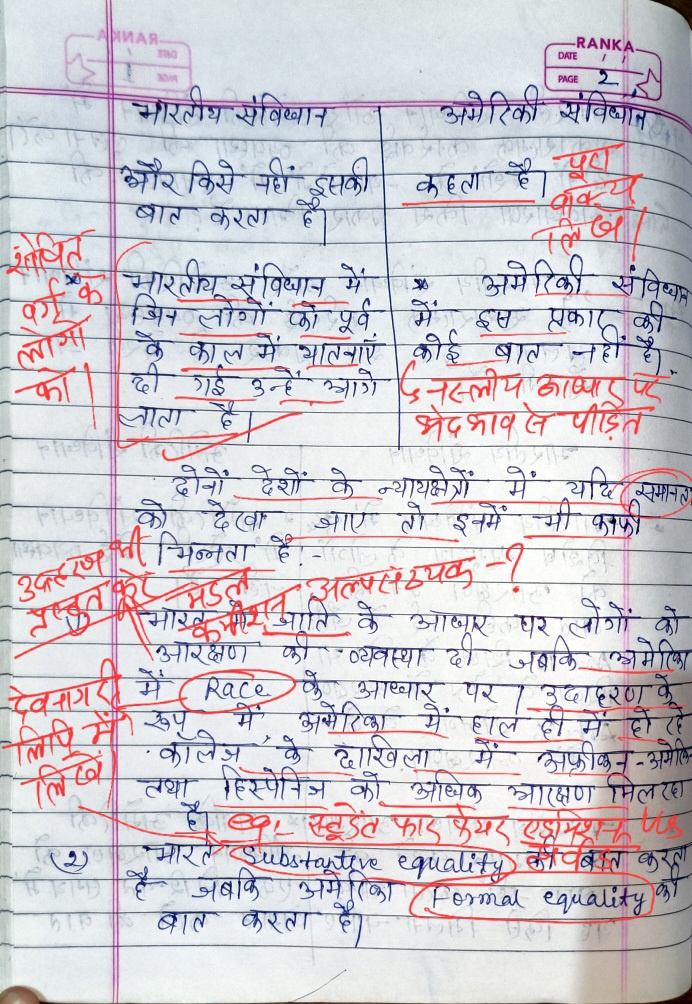 RANKA
DATE / /
PAGE 2
भारतीय संविधान
अमेरिकी संविधान
और किसे नहीं इसकी
बात करता है।
कहता है।
पूरा
वाक्य
लिखें।
शोषित
वर्ग के
लोगों
को।
* भारतीय संविधान में
जिन लोगों को पूर्व
के काल में यातनाएं
दी गई उन्हें आगे
लाता है।
* अमेरिकी संविधान
में इस प्रकार की
कोई बात नहीं है।
नस्लीय आधार पर
भेदभाव से पीड़ित
दोनों देशों के न्यायक्षेत्रों में यदि समानता
को देखा जाए तो इनमें भी काफी
भिन्नता है:-
उदाहरण भी
प्रस्तुत करें
मंडल
कमीशन
अल्पसंख्यक -?
भारत में जाति के आधार पर लोगों को
आरक्षण की व्यवस्था दी जबकि अमेरिका
में Race के आधार पर। उदाहरण के
रूप में अमेरिका में हाल ही में हो रहे
कॉलेज के दाखिला में अफ्रीकन-अमेरि
तथा हिस्पेनिज को अधिक आरक्षण मिल रहा
है।
देवनागरी
लिपि में
लिखें
eg:- स्टूडेंट फार फेयर एडमिशन Vs
(2) भारत Substantive equality की बात करता
है जबकि अमेरिका Formal equality की
बात करता है।